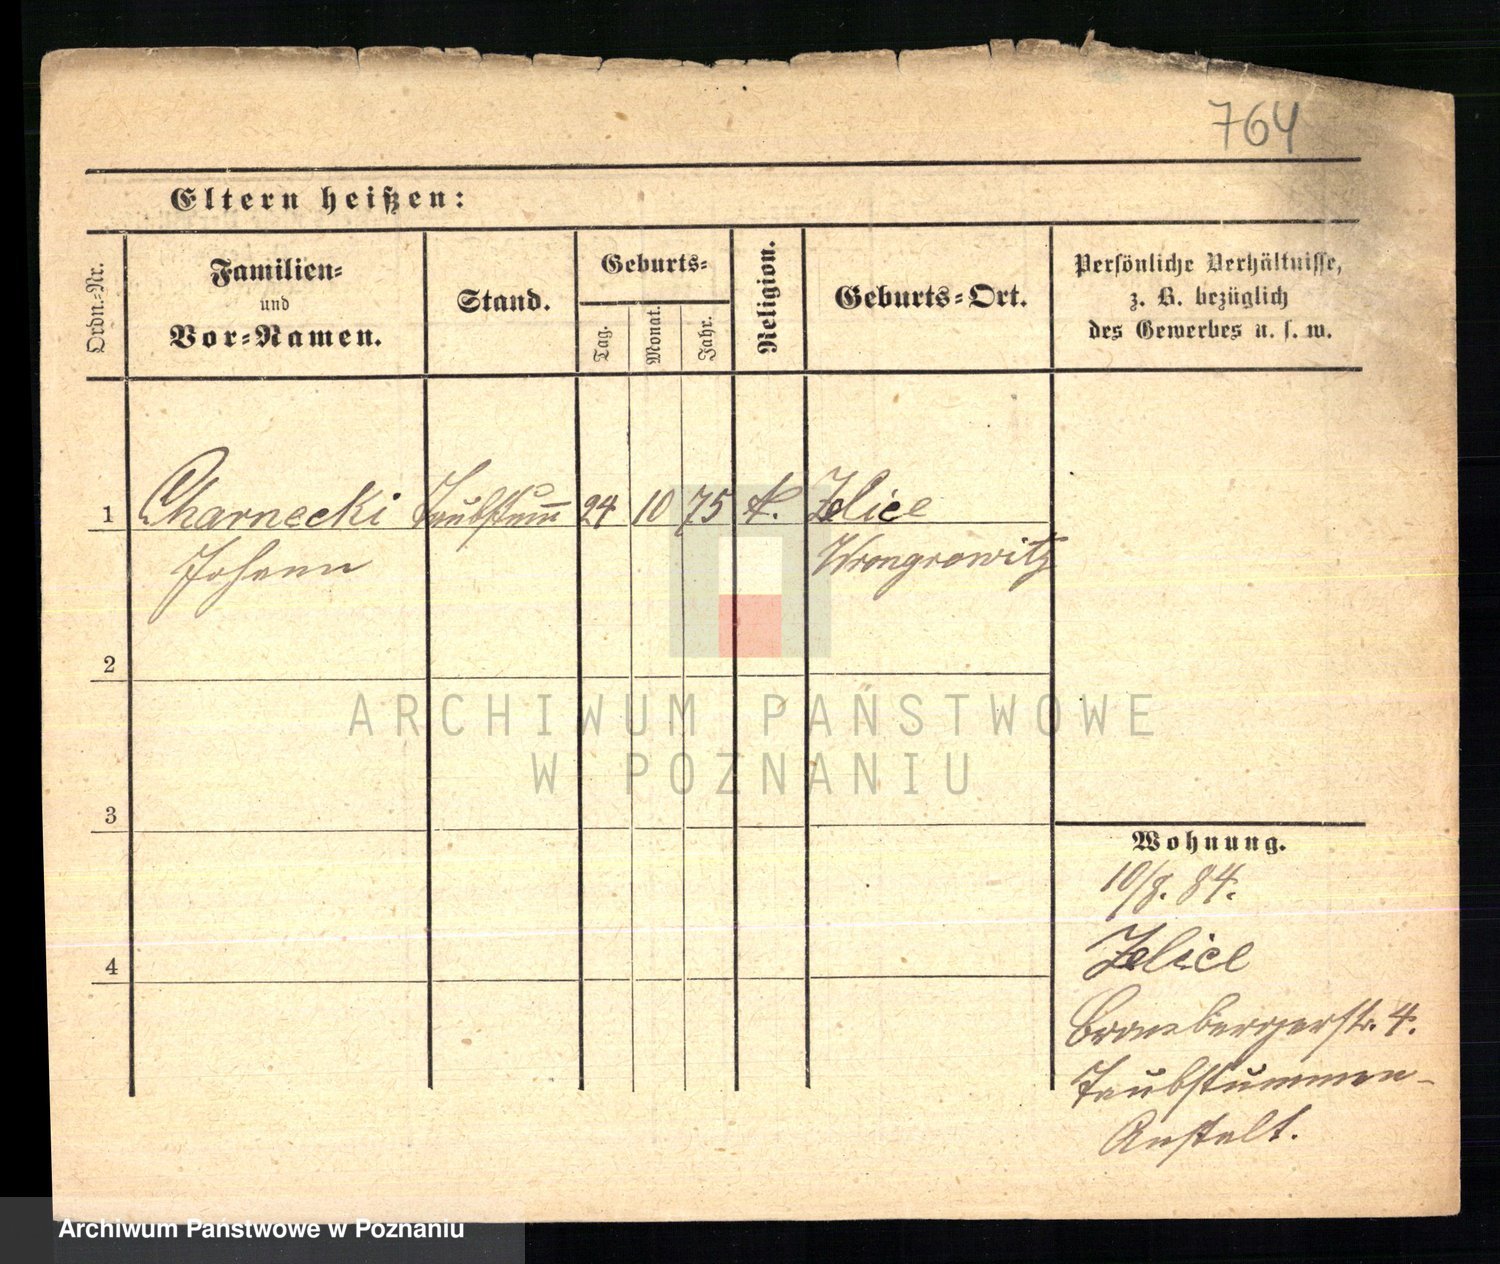 764
Eltern heißen:
Ordn.-Nr.
Familien-
und
Vor-Namen.
Stand.
Geburts-
Tag.
Monat.
Jahr.
Religion.
Geburts-Ort.
Persönliche Verhältnisse,
z. B. bezüglich
des Gewerbes u. s. w.
1 Charnecki Taubstumm 24 10 75 k. Zelice
Johann Wrongrowitz
2
3
4
Wohnung.
10/8. 84.
Zelice
Brombergerstr. 4.
Taubstummen-
Anstalt.
ARCHIWUM PAŃSTWOWE
W POZNANIU
Archiwum Państwowe w Poznaniu